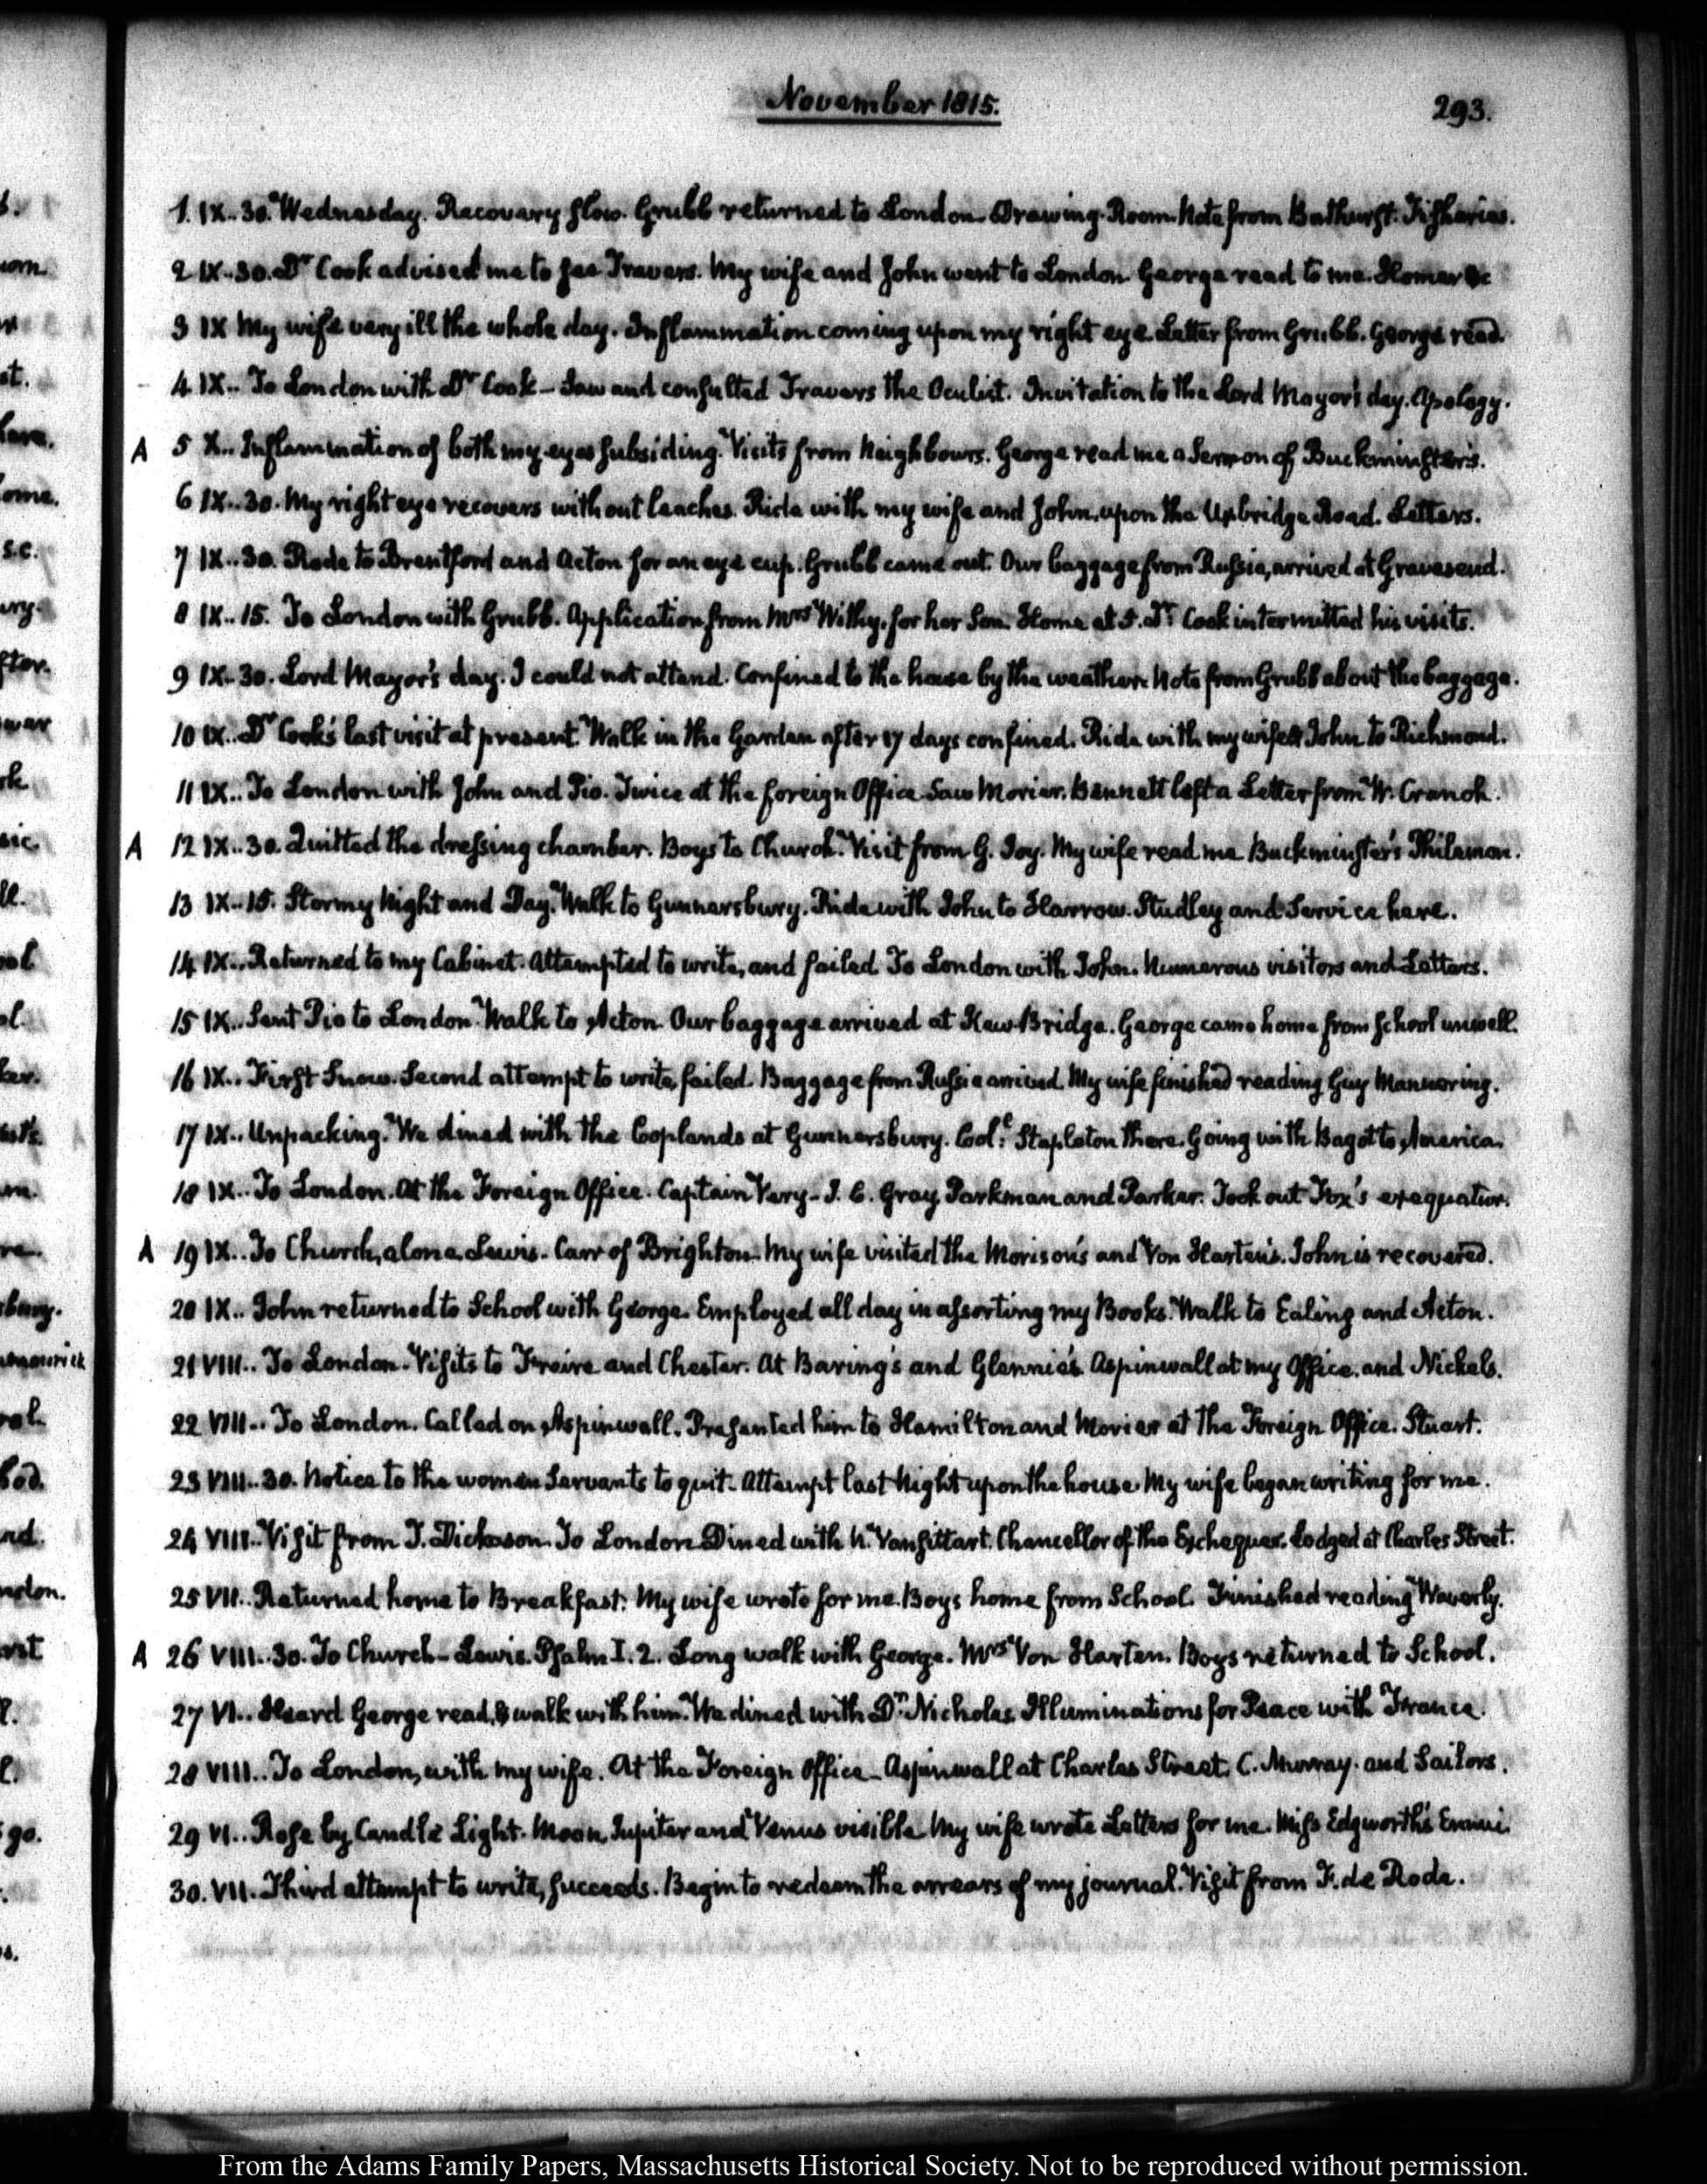 November 1815.
293.
1. IX..30. Wednesday. Recovery slow. Grubb returned to London. Drawing-Room. Note from Bathurst. Fisheries.
2 IX..30. Dr Cook advised me to see Travers. My wife and John went to London. George read to me. Homer &c
3 IX My wife very ill the whole day. Inflammation coming upon my right eye. Letter from Grubb. George read.
4 IX.. To London with Dr Cook – Saw and consulted Travers the Oculist. Invitation to the Lord Mayor's day. Apology.
A 5 X.. Inflammation of both my eyes subsiding. Visits from Neighbours. George read me a Sermon of Buckminster's.
6 IX..30. My right eye recovers without leaches. Ride with my wife and John, upon the Uxbridge Road. Letters.
7 IX..30. Rode to Brentford and Acton for an eye cup. Grubb came out. Our baggage from Russia, arrived at Gravesend.
8 IX..15. To London with Grubb. Application from Mrs Withy, for her Son. Home at 5. Dr Cook intermitted his visits.
9 IX..30. Lord Mayor's day. I could not attend. Confined to the house by the weather. Note from Grubb about the baggage.
10 IX.. Dr Cook's last visit at present. Walk in the Garden after 17 days confined. Ride with my wife & John to Richmond.
11 IX.. To London with John and Pio. Twice at the foreign Office. Saw Morier. Bennett left a Letter from W. Cranch.
A 12 IX..30. Quitted the dressing chamber. Boys to Church. Visit from G. Joy. My wife read me Buckminster's Philemon.
13 IX..15. Stormy Night and Day. Walk to Gunnersbury. Ride with John to Harrow. Studley and Service here.
14 IX.. Returned to my Cabinet. Attempted to write, and failed. To London with John. Numerous visitors and Letters.
15 IX.. Sent Pio to London. Walk to Acton. Our baggage arrived at Kew-Bridge. George came home from School unwell.
16 IX.. First Snow. Second attempt to write, failed. Baggage from Russia arrived. My wife finished reading Guy Mannering.
17 IX.. Unpacking. We dined with the Coplands at Gunnersbury. Coll: Stapleton there. Going with Bagot to America.
18 IX.. To London. At the Foreign Office. Captain Very – J. C. Gray, Parkman and Parker. Took out Fox's exequatur.
A 19 IX.. To Church, alone. Lewis. Carr of Brighton. My wife visited the Morison's and Von Harten's. John is recovered.
20 IX.. John returned to School with George. Employed all day in assorting my Books. Walk to Ealing and Acton.
21 VIII.. To London. Visits to Freire and Chester. At Baring's and Glennie's. Aspinwall at my Office, and Nickels.
22 VIII.. To London. Called on Aspinwall. Presented him to Hamilton and Morier at the Foreign Office. Stuart.
23 VIII..30. Notice to the women Servants to quit. Attempt last Night upon the house. My wife began writing for me.
24 VIII.. Visit from J. Dickason. To London. Dined with N. Vansittart. Chancellor of the Exchequer. Lodged at Charles Street.
25 VII.. Returned home to Breakfast. My wife wrote for me. Boys home from School. Finished reading Waverly.
A 26 VIII..30. To Church – Lewis. Psalm I. 2. Long walk with George. Mrs Von Harten. Boys returned to School.
27 VI.. Heard George read, & walk with him. We dined with Dr Nicholas. Illuminations for Peace with France.
28 VIII.. To London, with my wife. At the Foreign Office – Aspinwall at Charles Street. C. Murray. and Sailors.
29 VI.. Rose by Candle Light. Moon, Jupiter and Venus visible. My wife wrote Letters for me. Miss Edgworth's Ennui.
30. VII. Third attempt to write, succeeds. Begin to redeem the arrears of my journal. Visit from F. de Rode.
From the Adams Family Papers, Massachusetts Historical Society. Not to be reproduced without permission.